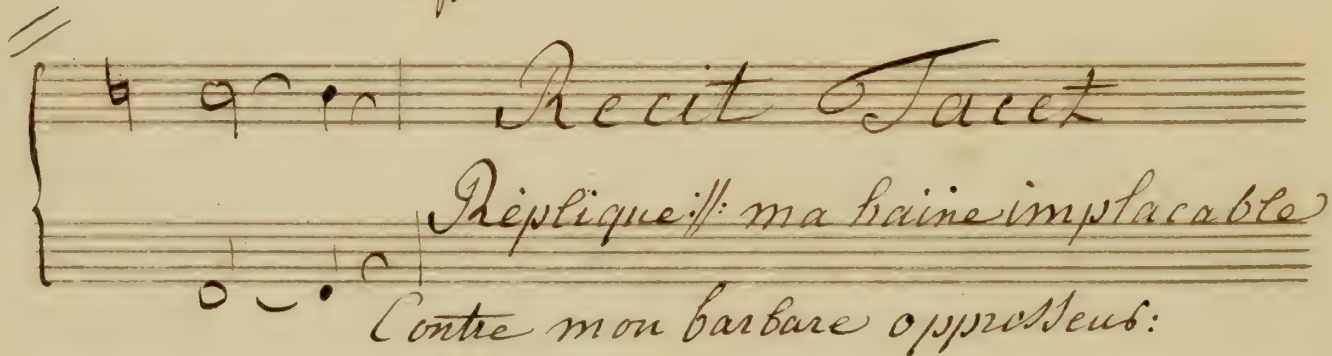 Recit Tacet
Réplique :||: ma haine implacable
Contre mon barbare oppresseur: